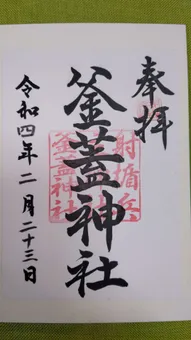 奉拝
釜蓋神社
射楯兵
釜蓋神社
令和四年二月二十三日